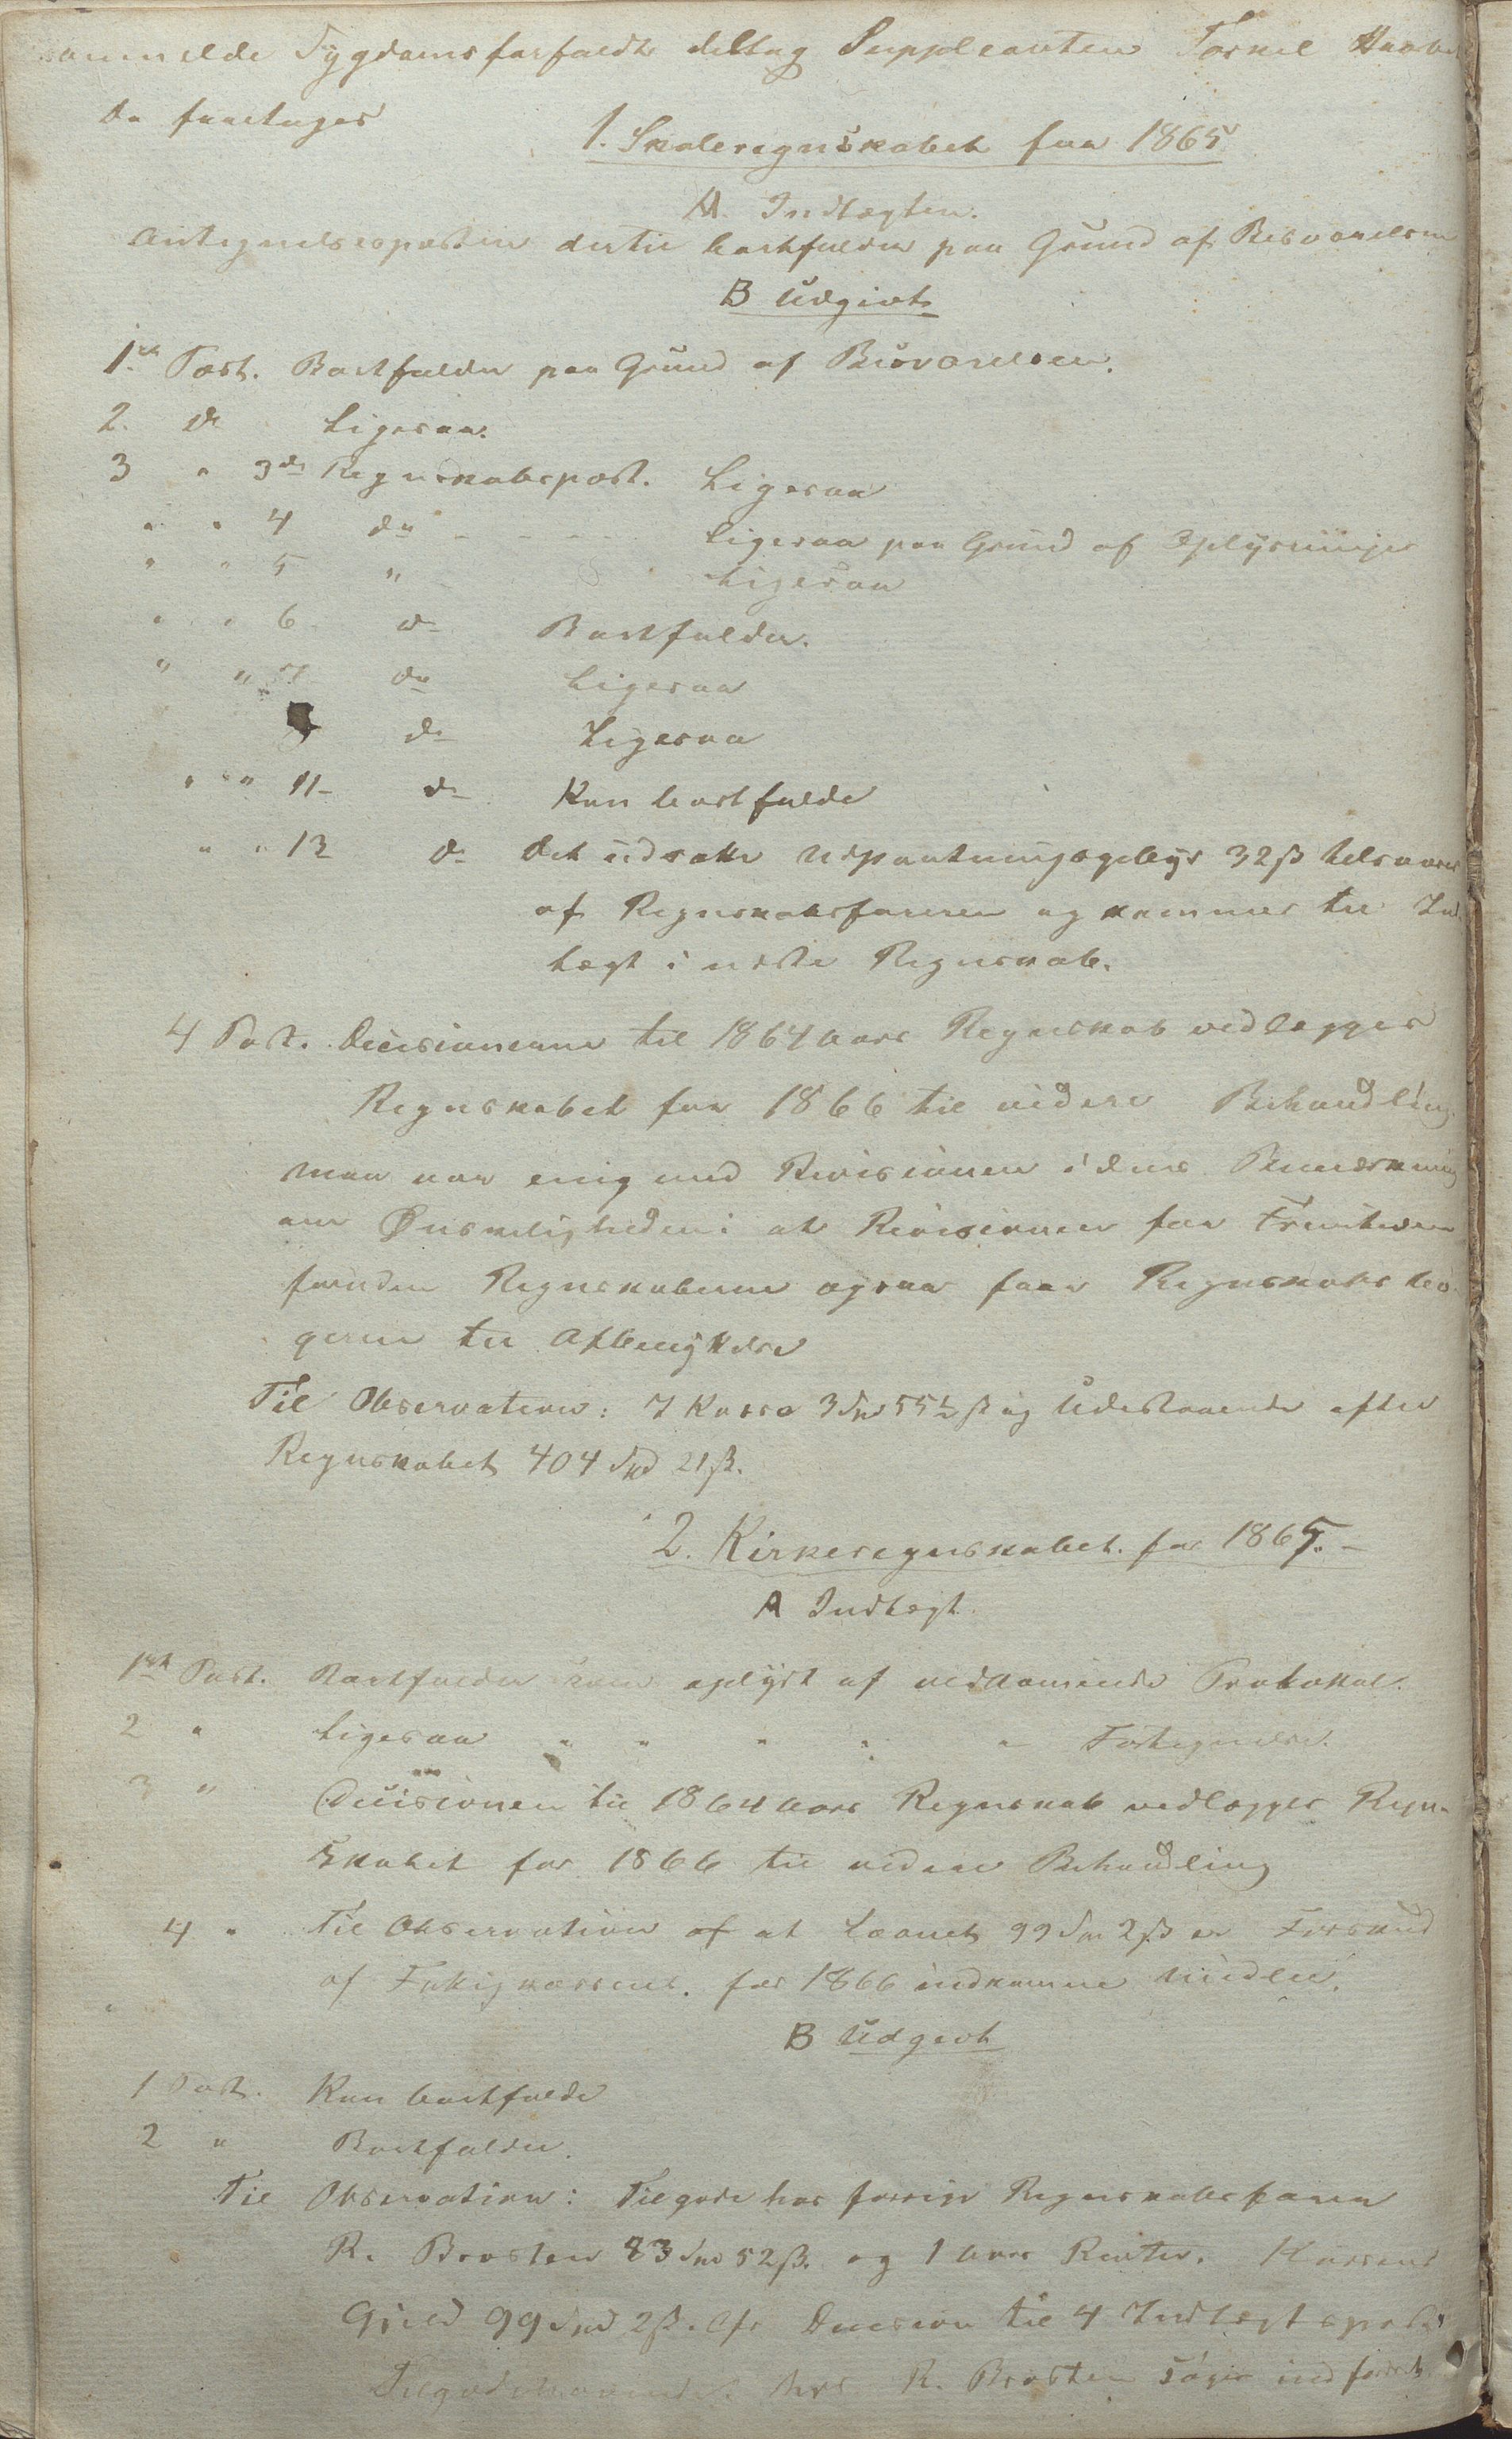 anmeldt Sygdomsforfald deltog Suppleanten Torkel
Da foretages
1. Skoleregnskabet for 1865
A. Indtægten.
Antegnelsesposten dertil bortfalder paa Grund af Besvarelsen
B Udgivt
1ste Post. Bortfalder paa Grund af Besvarelsen.
2. do Ligesaa.
3 " 3die Regnskabspost. Ligesaa
" " 4 do - - - - Ligesaa paa Grund af Oplysninger
" " 5 " Ligesaa
" " 6 do Bortfalder.
" " 7 do Ligesaa
9 do Ligesaa
" " 11 do Kan bortfalde
" " 13 do Det udsatte Udpantningsgebyr 32 ß tilsvares
af Regnskabsføreren og kommer til Ind-
tægt i næste Regnskab.
4 Post. Decisionerne til 1864 Aars Regnskab vedlægges
Regnskabet for 1866 til videre Behandling.
Man var enig med Revisionen i dens Bemærkning
om Ønskeligheden i at Revisionen for Fremtiden
foruden Regnskaberne ogsaa faar Regnskabsbø-
gerne til Afbenyttelse
Til Observation: I Kassa 3 Spd 55½ ß og Udestaaende efter
Regnskabet 404 Spd 21 ß.
2. Kirkeregnskabet for 1865. -
A Indtægt
1ste Post. Bortfalder som oplyst af vedkommende Protokol.
2 " Ligesaa " " " " " Fortegnelse.
3 " Decisionen til 1864 Aars Regnskab vedlægges Regn-
skabet for 1866 til videre Behandling
4 " Til Observation af at Laanet 99 Spd 2 ß er Forskud
af Fattigkassens for 1866 indkomne Midler.
B Udgivt
1 Post. Kan bortfalde
2 " Bortfalder.
Til Observation: Tilgode hos forrige Regnskabsfører
R. Brosten 83 Spd 52 ß. og 1 Aars Renter. Kassens
Gjæld 99 Spd 2 ß. Cfr Decision til 4 Indtægtspost
Tilgodehavendet hos R. Brosten søges indfordret